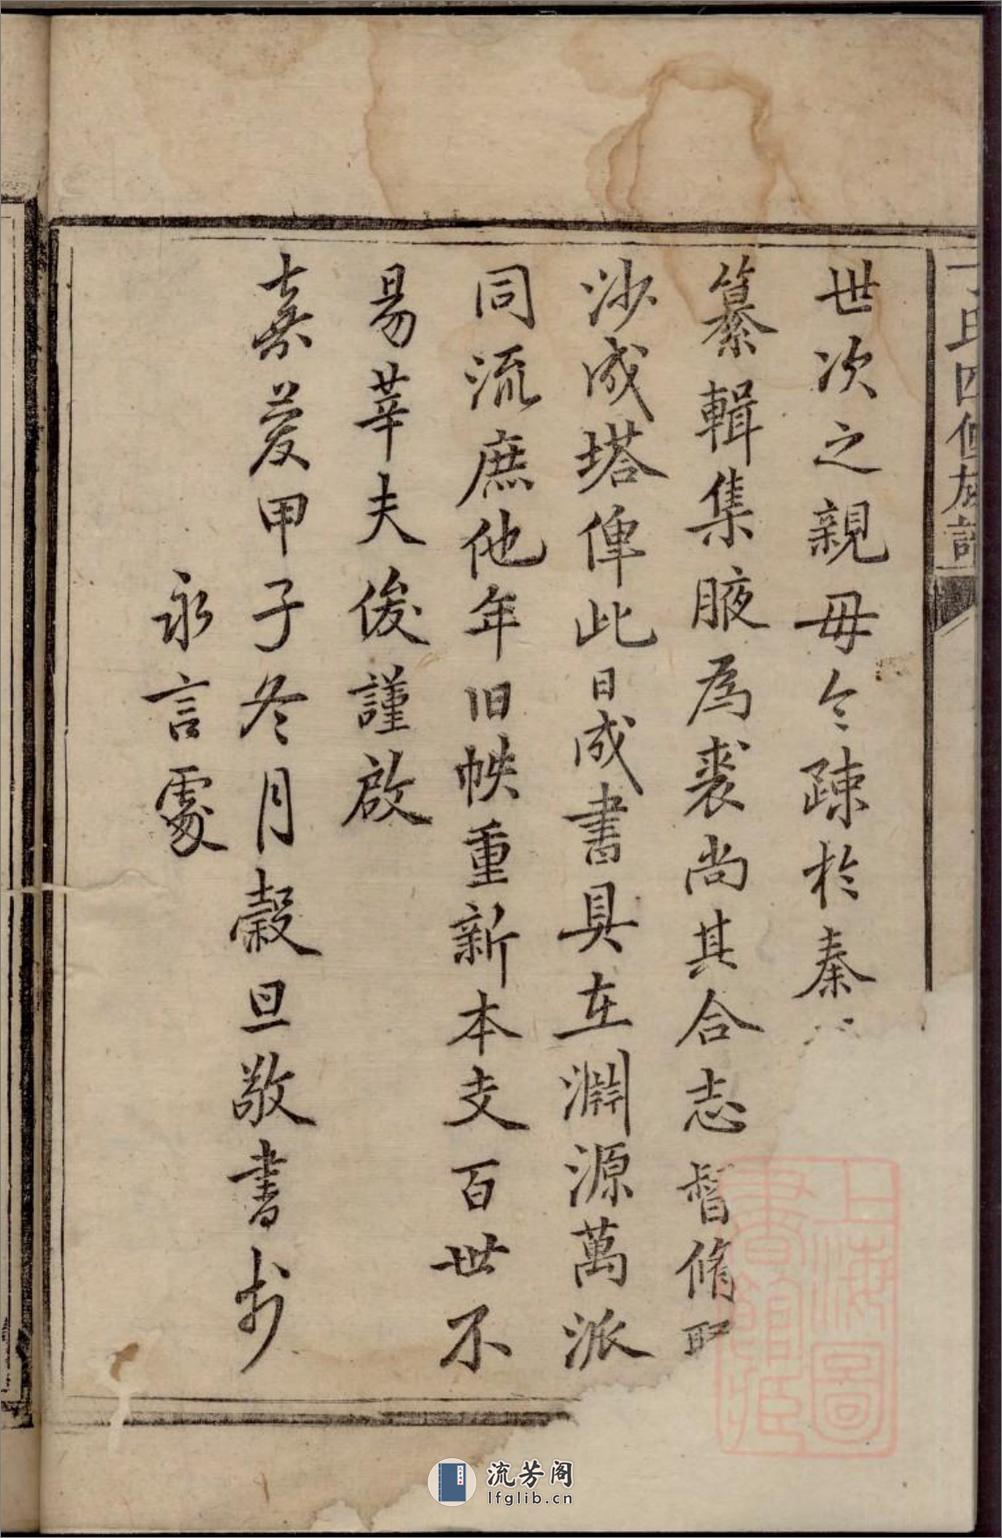 丁氏四修族譜
世次之親毋令疎於秦
纂輯集腋為裘尚其合志督脩聚
沙成塔俾此日成書具在淵源萬派
同流庶他年旧帙重新本支百世不
易莘夫俊謹啟
嘉慶甲子冬月穀旦敬書於
永言處
上海圖書館藏
流芳阁
lfglib.cn